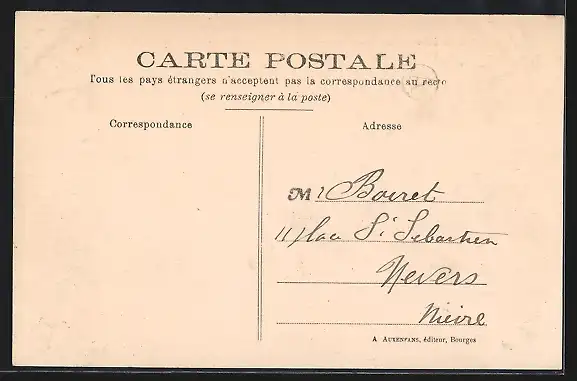 CARTE POSTALE
Tous les pays étrangers n'acceptent pas la correspondance au recto
(se renseigner à la poste)
Correspondance
Adresse
Mr Boiret
11 place St Sebastien
Nevers
Nièvre
A AUXENFANS, éditeur, Bourges